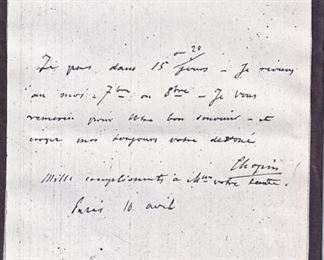 ou 20
Je pars dans 15 jours – Je reviens
au moi – 7bre ou 8bre – Je vous
remercie pour votre bon souvenir – et
croyez moi toujours votre dévoué
Chopin
Mille compliments à Mme votre tante.
Paris 10 avril